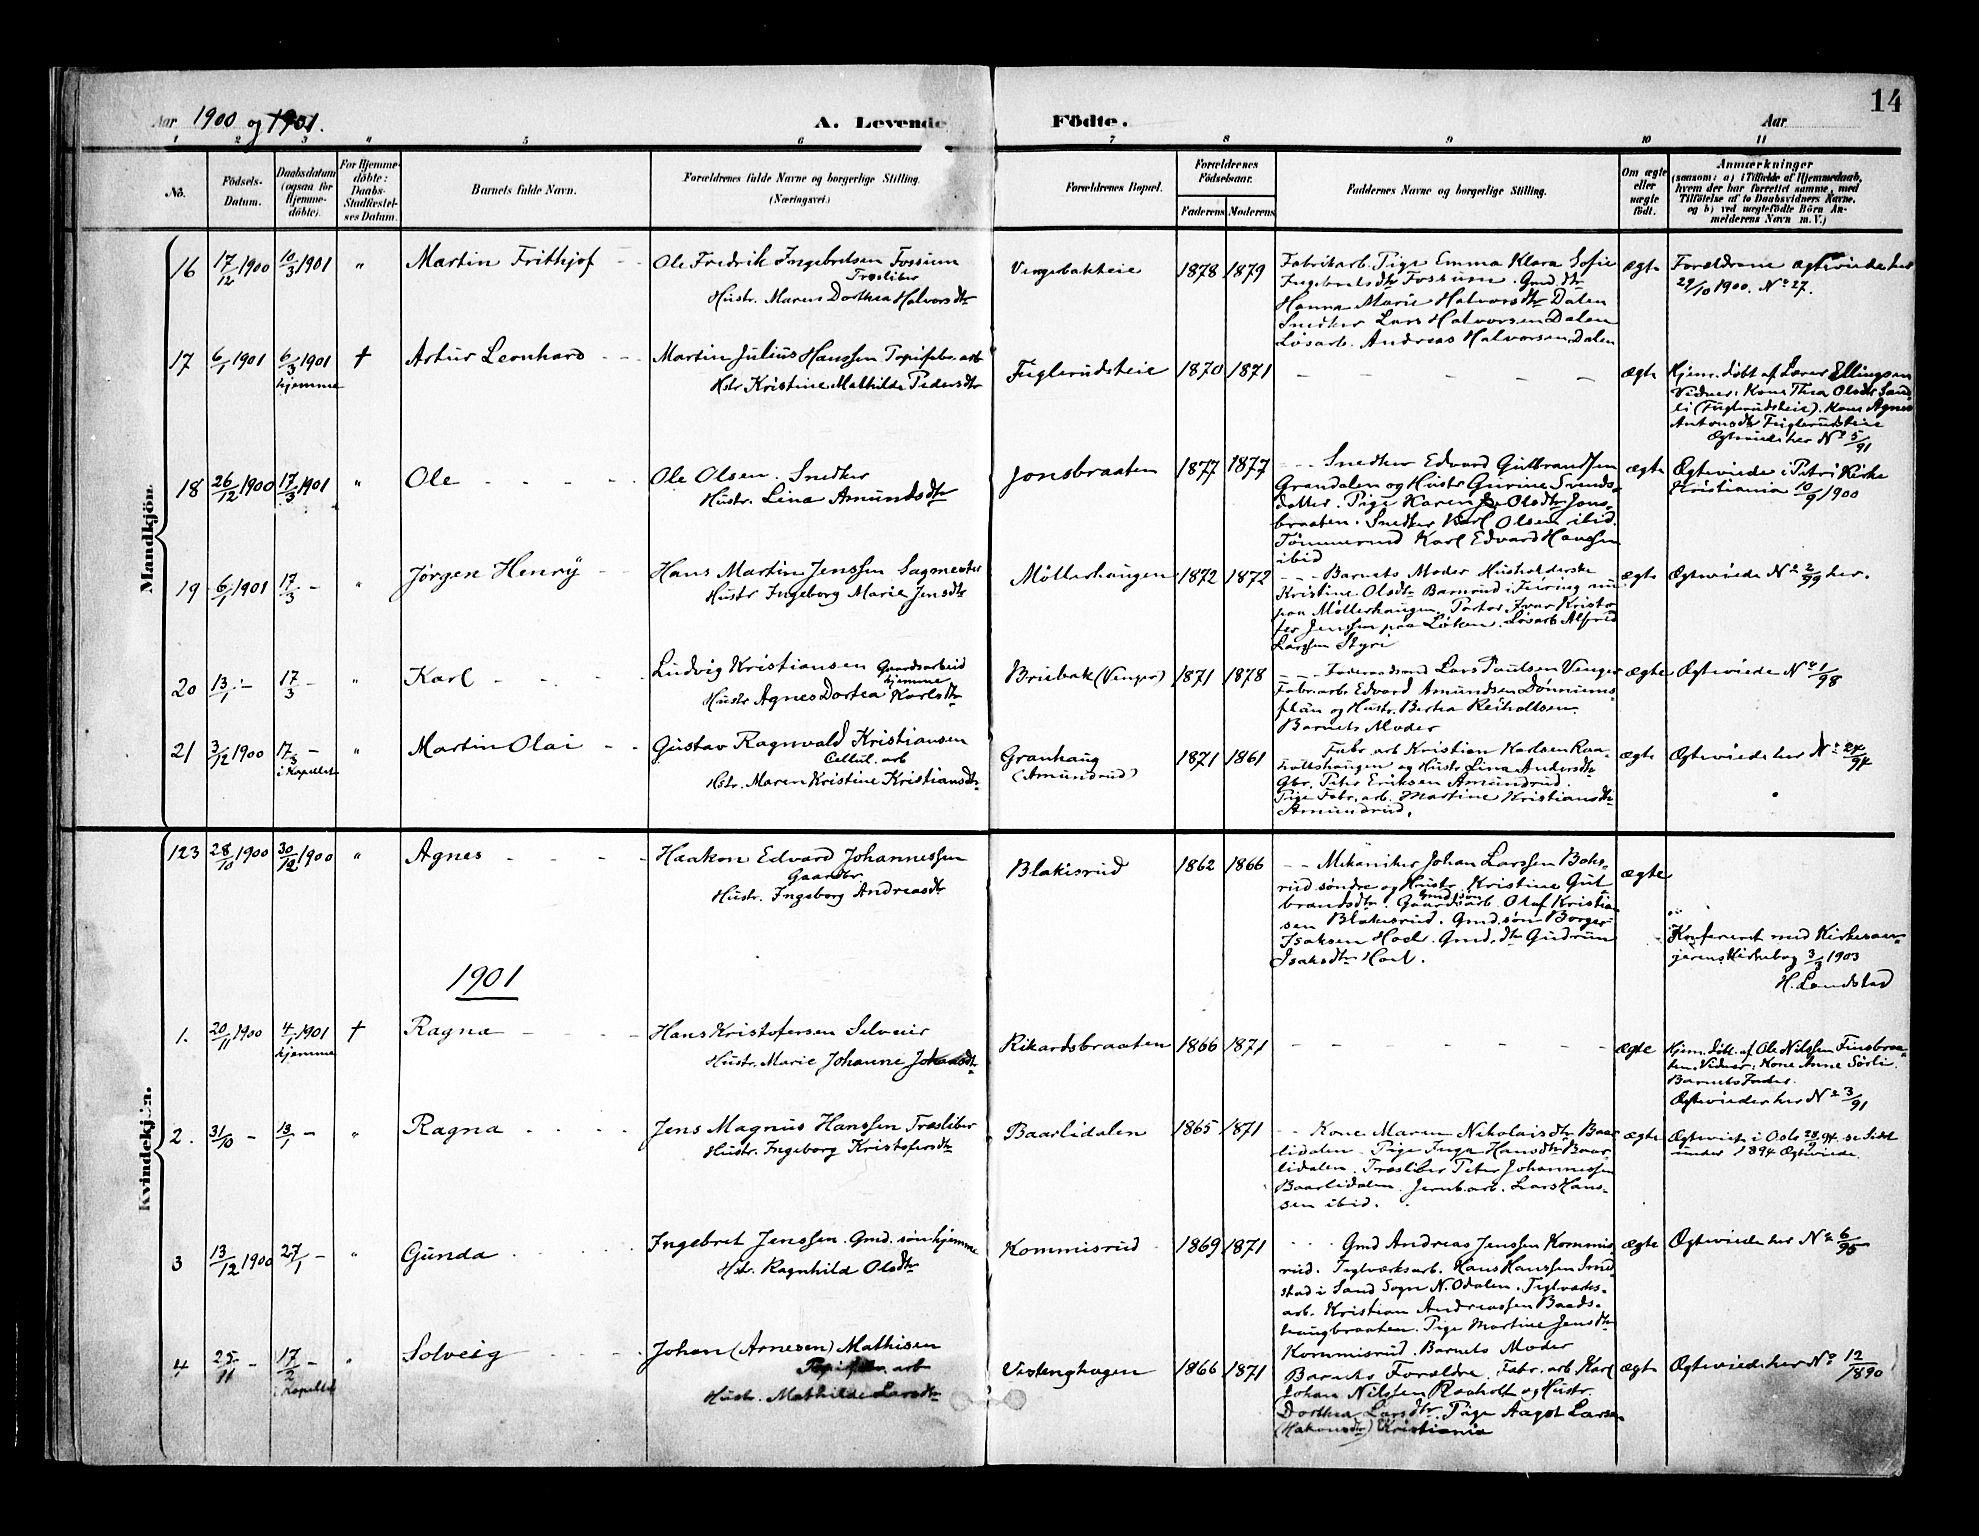 14
Aar 1900 og 1901.
A. Levende Födte.
Aar
1 2 3 4 5 6 7 8 9 10 11
No.
Födsels-Datum.
Daabsdatum (ogsaa for Hjemme-döbte).
For Hjemme-döbte: Daabs-Stadfæstel-ses Datum.
Barnets fulde Navn.
Forældrenes fulde Navne og borgerlige Stilling. (Næringsvei.)
Forældrenes Bopæl.
Forældrenes Födselsaar.
Faderens Moderens
Faddernes Navne og borgerlige Stilling.
Om ægte eller uægte födt.
Anmærkninger
(saasom: a) i Tilfælde af Hjemmedaab,
hvem der har forrettet samme, med
Tilföielse af to Daabsvidners Navne,
og b) ved uægtefödte Börn An-
melderens Navn m. V.)
Mandkjön.
16 17/12 1900 10/3 1901 " Martin Frithjof
Ole Fredrik Ingebretsen Fossum
Træsliber
Hustr. Maren Dorthea Halvorsdtr
1878 1879
Fabrikarb. Pige Emma Klara Sofie
Ingebretsdtr Fossum. Gmd.dtr
Hanna Marie Halvorsdtr Dalen
Snedker Lars Halvorsen Dalen
Løsarb. Andreas Halvorsen Dalen
ægte
Forældrene ægteviede her
29/10 1900. No 27.
17 6/1 1901 6/3 1901 hjemme † Artur Leonhard
Martin Julius Hanssen Papirfabr. arb
Hstr Kristine Mathilde Pedersdtr
Fuglerudsteie 1870 1871
ægte
Hjem. døbt af Lærer Ellingsen
Vidner: Kone Thea Olsdtr Sand-
li (Fuglerudsteie). Kone Agnes
Antonsdtr Fuglerudsteie
Ægteviede her No 5/91
18 26/12 1900 17/3 1901 " Ole
Ole Olsen. Snedker
Hustr. Lina Amundsdtr
Jonsbraaten 1877 1877
Snedker Edvard Gulbrandsen
Grandalen og Hustr Gurine Svends-
datter. Pige Karen Olsdtr Jons-
braaten. Snedker Karl Olsen ibid.
Tømmermd Karl Edvard Hanssen
ibid
ægte
Ægteviede i Petri Kirke
Kristiania 10/9 1900
19 6/1 1901 17/3 – " Jørgen Henrÿ
Hans Martin Jenssen Sagmester
Hustr Ingeborg Marie Jensdtr
Møllerhaugen 1872 1872
Barnets Moder Husholderske
Kristine Olsdtr Barnrud i Feiring nu
paa Møllerhaugen. Portør Ivar Kristo-
fer Jenssen paa Løken. Løsarb Alfred
Larssen Styri
ægte
Ægteviede No 2/99 her.
20 13/1 – 17/3 – " Karl
Ludvig Kristiansen Gaardsarbeid
hjemme
Hustr Agnes Dortea Karlsdtr
Briebak (Venger) 1871 1878
Lars Paulsen Venger
Fabr. arb Edvard Amundsen Dønnums-
plån og Hustr. Berta Reiholtsen.
Barnets Moder
ægte
Ægteviede No 1/98
21 3/12 1900 17/3 – i Kapellet " Martin Olai
Gustav Ragnvald Kristiansen
Cellul. arb
Hstr. Maren Kristine Kristiansdtr
Granhaug
(Amundrud)
1871 1861
Fabr. arb Kristian Karlsen Raa-
holtshaugen og Hustr Lina Andersdtr
Gbr. Peter Eriksen Amundrud.
Pige Fabr. arb. Martine Kristiansdtr
Amundrud.
ægte
Ægteviede her No 24/94
Kvindekjön.
123 28/10 1900 30/12 1900 " Agnes
Haakon Edvard Johannessen
Gaardbr
Hustr. Ingeborg Andreasdtr
Blakisrud 1862 1866
Mekaniker Johan Larssen Bohs-
rud søndre og Hustr Kristine Gul-
brandsdtr. Gmd søn Gaardsarb Olaf Kristian-
sen Blakisrud. Gmd. søn Borger
Isaksen Hoel. Gmd. dtr Gudrun
Isaksdtr Hoel.
ægte
Konfereret med Kirkesan-
gerens Kirkebog 3/3 1903
H. Landstad
1901
1. 20/11 1900 4/1 1901 hjemme † Ragna
Hans Kristofersen Selveier
Hustr. Marie Johanne
Rikardsbraaten 1866 1871
ægte
Hjem. døbt. af Ole Nilssen Finsbraa-
ten. Vidner: Kone Anne Sørli.
Barnets Fader.
Ægteviede her No 3/91
2. 31/10 – 13/1 – " Ragna
Jens Magnus Hanssen Træsliber
Hustr. Ingeborg Kristofersdtr
Baarlidalen 1865 1871
Kone Maren Nikolaisdtr Baar-
lidalen. Pige Inga Hansdtr Baar-
lidalen. Træsliber Peter Johannessen
Baarlidalen. Jernb. arb. Lars Hans-
sen ibid.
ægte
Ægteviet i Oslo 94. se Sidst
under 1894 Ægteviede.
3 13/12 1900 27/1 – " Gunda
Ingebret Jenssen. Gmd. søn hjemme
Hstr. Ragnhild Olsdtr
Kommisrud 1869 1871
Gmd Andreas Jenssen Kommis-
rud. Teglværksarb. Hans Hanssen Smed-
stad i Sand Sogn N. Odalen. Teglværks-
arb. Kristian Andreassen Baads-
haugbraaten. Pige Martine Jensdtr
Kommisrud. Barnets Moder
ægte
Ægteviede her No 6/95
4 25/11 – 17/2 – i Kapellet " Solveig
Johan (Arnesen) Mathisen
Papirfabr. arb
Hustr. Mathilde Larsdtr
Vestenghagen 1866 1871
Barnets Forældre. Fabr. arb Karl
Johan Nilssen Raaholt og Hustr.
Dorthea Larsdtr. Pige Aagot Larsen
(Hakonsdtr) Kristiania
ægte
Ægteviede her No 12/1890